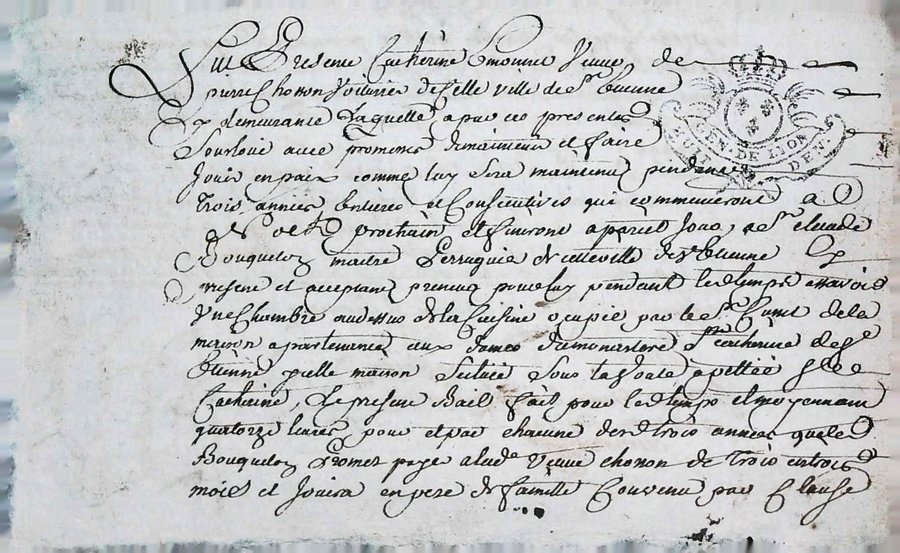 Fut Presente Catherine Vve de
pierre Chonon Voiturier de Celle ville de St Etienne
y demeurante Laquelle a par ces presentes
Souloue avec promesse de maintenir et faire
Jouir en paix comme luy Sera maintenu pendant
Trois années Entieres et Consecutives qui commenceront a
prochain et finiront a pareil Jour, a Sr claude
Bouquelon maitre Perruquier de cette ville de St Etienne y
present et acceptant preneur pour luy pendant led temps assavoir
Une Chambre au dessus de la Cuisine ocupée par le Sr de la
maison apartenante aux Dames du monastere Ste Catherine de St
Etienne quelle maison Scituée Sous la Voute apellée Ste
Catherine, Le present Bail fait pour led temps et moyennant
quatorze livres pour et par chacune desd trois années que led
Bouquelon Promet payer a lade Veuve chonon de Trois en trois
mois et Jouira en pere de famille Convenu par Clause
GEN. DE LION
HUIT DEN.